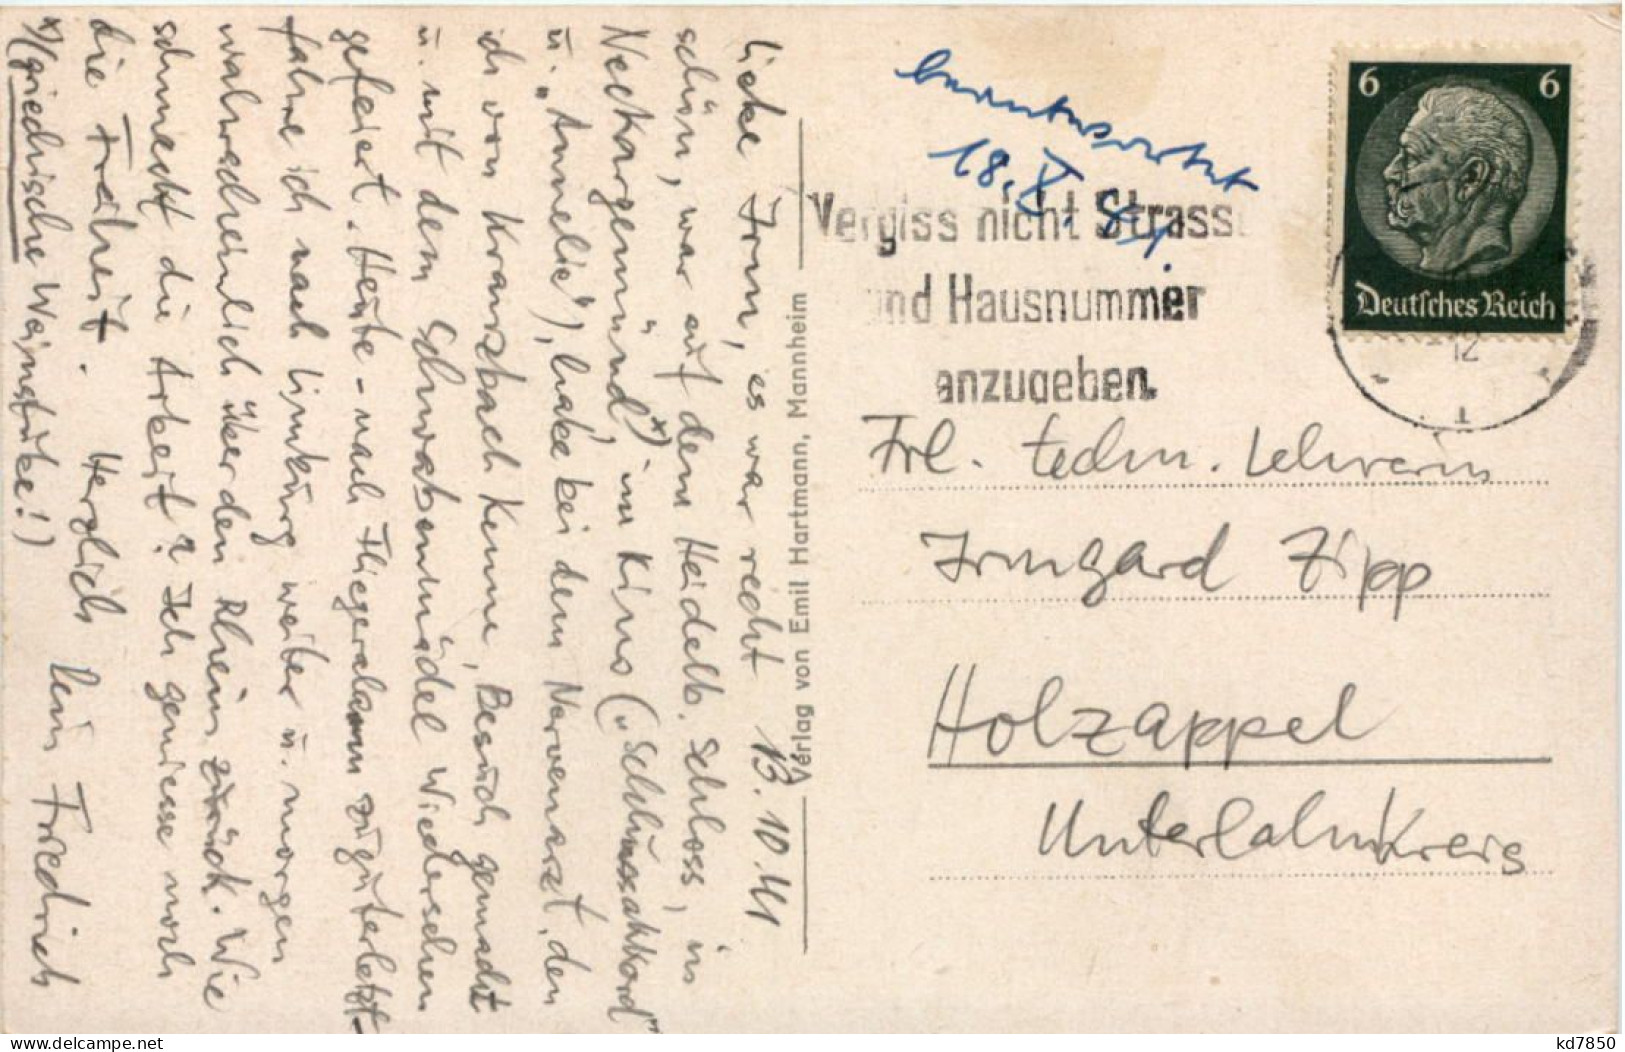 Liebe Irm, es war recht 13.10.41
schön, war auf dem Heidelb. Schloss, in
Neckargemünd x), im Kino („Schlussakkord"
u. „Annelie"), habe bei dem Nervenarzt, den
ich von Kranzbach kenne, Besuch gemacht
u. mit dem Schwabenmädel Wiedersehen
gefeiert. Heute – nach Fliegeralarm zuguterletzt –
fahre ich nach Limburg weiter u. morgen
wahrscheinlich über den Rhein zurück. Wie
schmeckt die Arbeit? Ich geniesse noch
die Freiheit. Herzlich Dein Friedrich
x) (griechische Weinstube!)
Verlag von Emil Hartmann, Mannheim
beantwortet
18. X. 41.
Vergiss nicht Strasse
und Hausnummer
anzugeben.
6 6
Deutsches Reich
12
1
Frl. techn. Lehrerin
Irmgard Zipp
Holzappel
Unterlahnkreis
kd7850